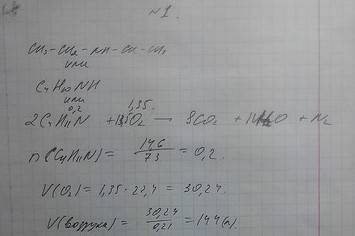 №1.
CH₃-CH₂-NH-CH₂-CH₃
или
C₄H₁₀NH
или
0,2 1,35.
2C₄H₁₁N + O₂ → 8CO₂ + 11H₂O + N₂
n(C₄H₁₁N) = 14,6 / 73 = 0,2.
V(O₂) = 1,35 · 22,4 = 30,24.
V(воздуха) = 30,24 / 0,21 = 144(л).